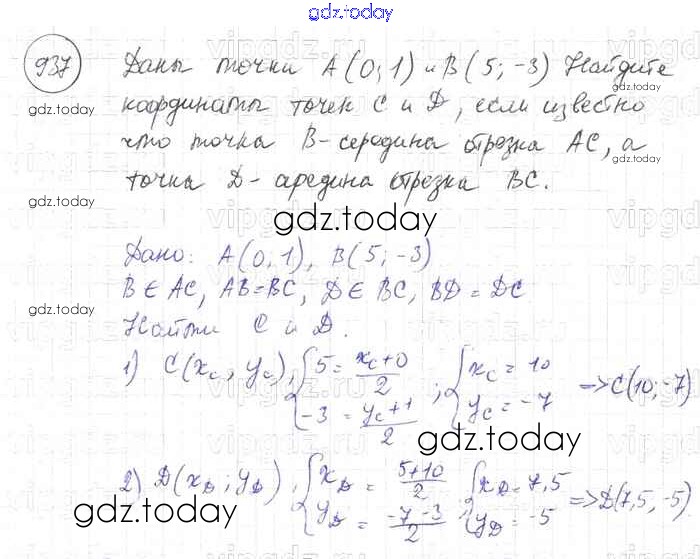 gdz.today
937 Даны точки A(0;1) и B(5;-3) Найдите
gdz.today
координаты точек C и D, если известно
gdz.today
что точка B-середина отрезка AC, а
gdz.today
точка D-середина отрезка BC.
gdz.today
gdz.today
gdz.today
Дано: A(0;1), B(5;-3)
B ∈ AC, AB=BC, D ∈ BC, BD = DC
gdz.today
Найти C и D.
1) C(x_C, y_C), { 5 = (x_C+0)/2 ; -3 = (y_C+1)/2 ; { x_C = 10 ; y_C = -7 => C(10;-7)
gdz.today
gdz.today
2) D(x_D; y_D), { x_D = (5+10)/2 ; y_D = (-7-3)/2 ; { x_D = 7,5 ; y_D = -5 => D(7,5, -5).
gdz.today
gdz.today